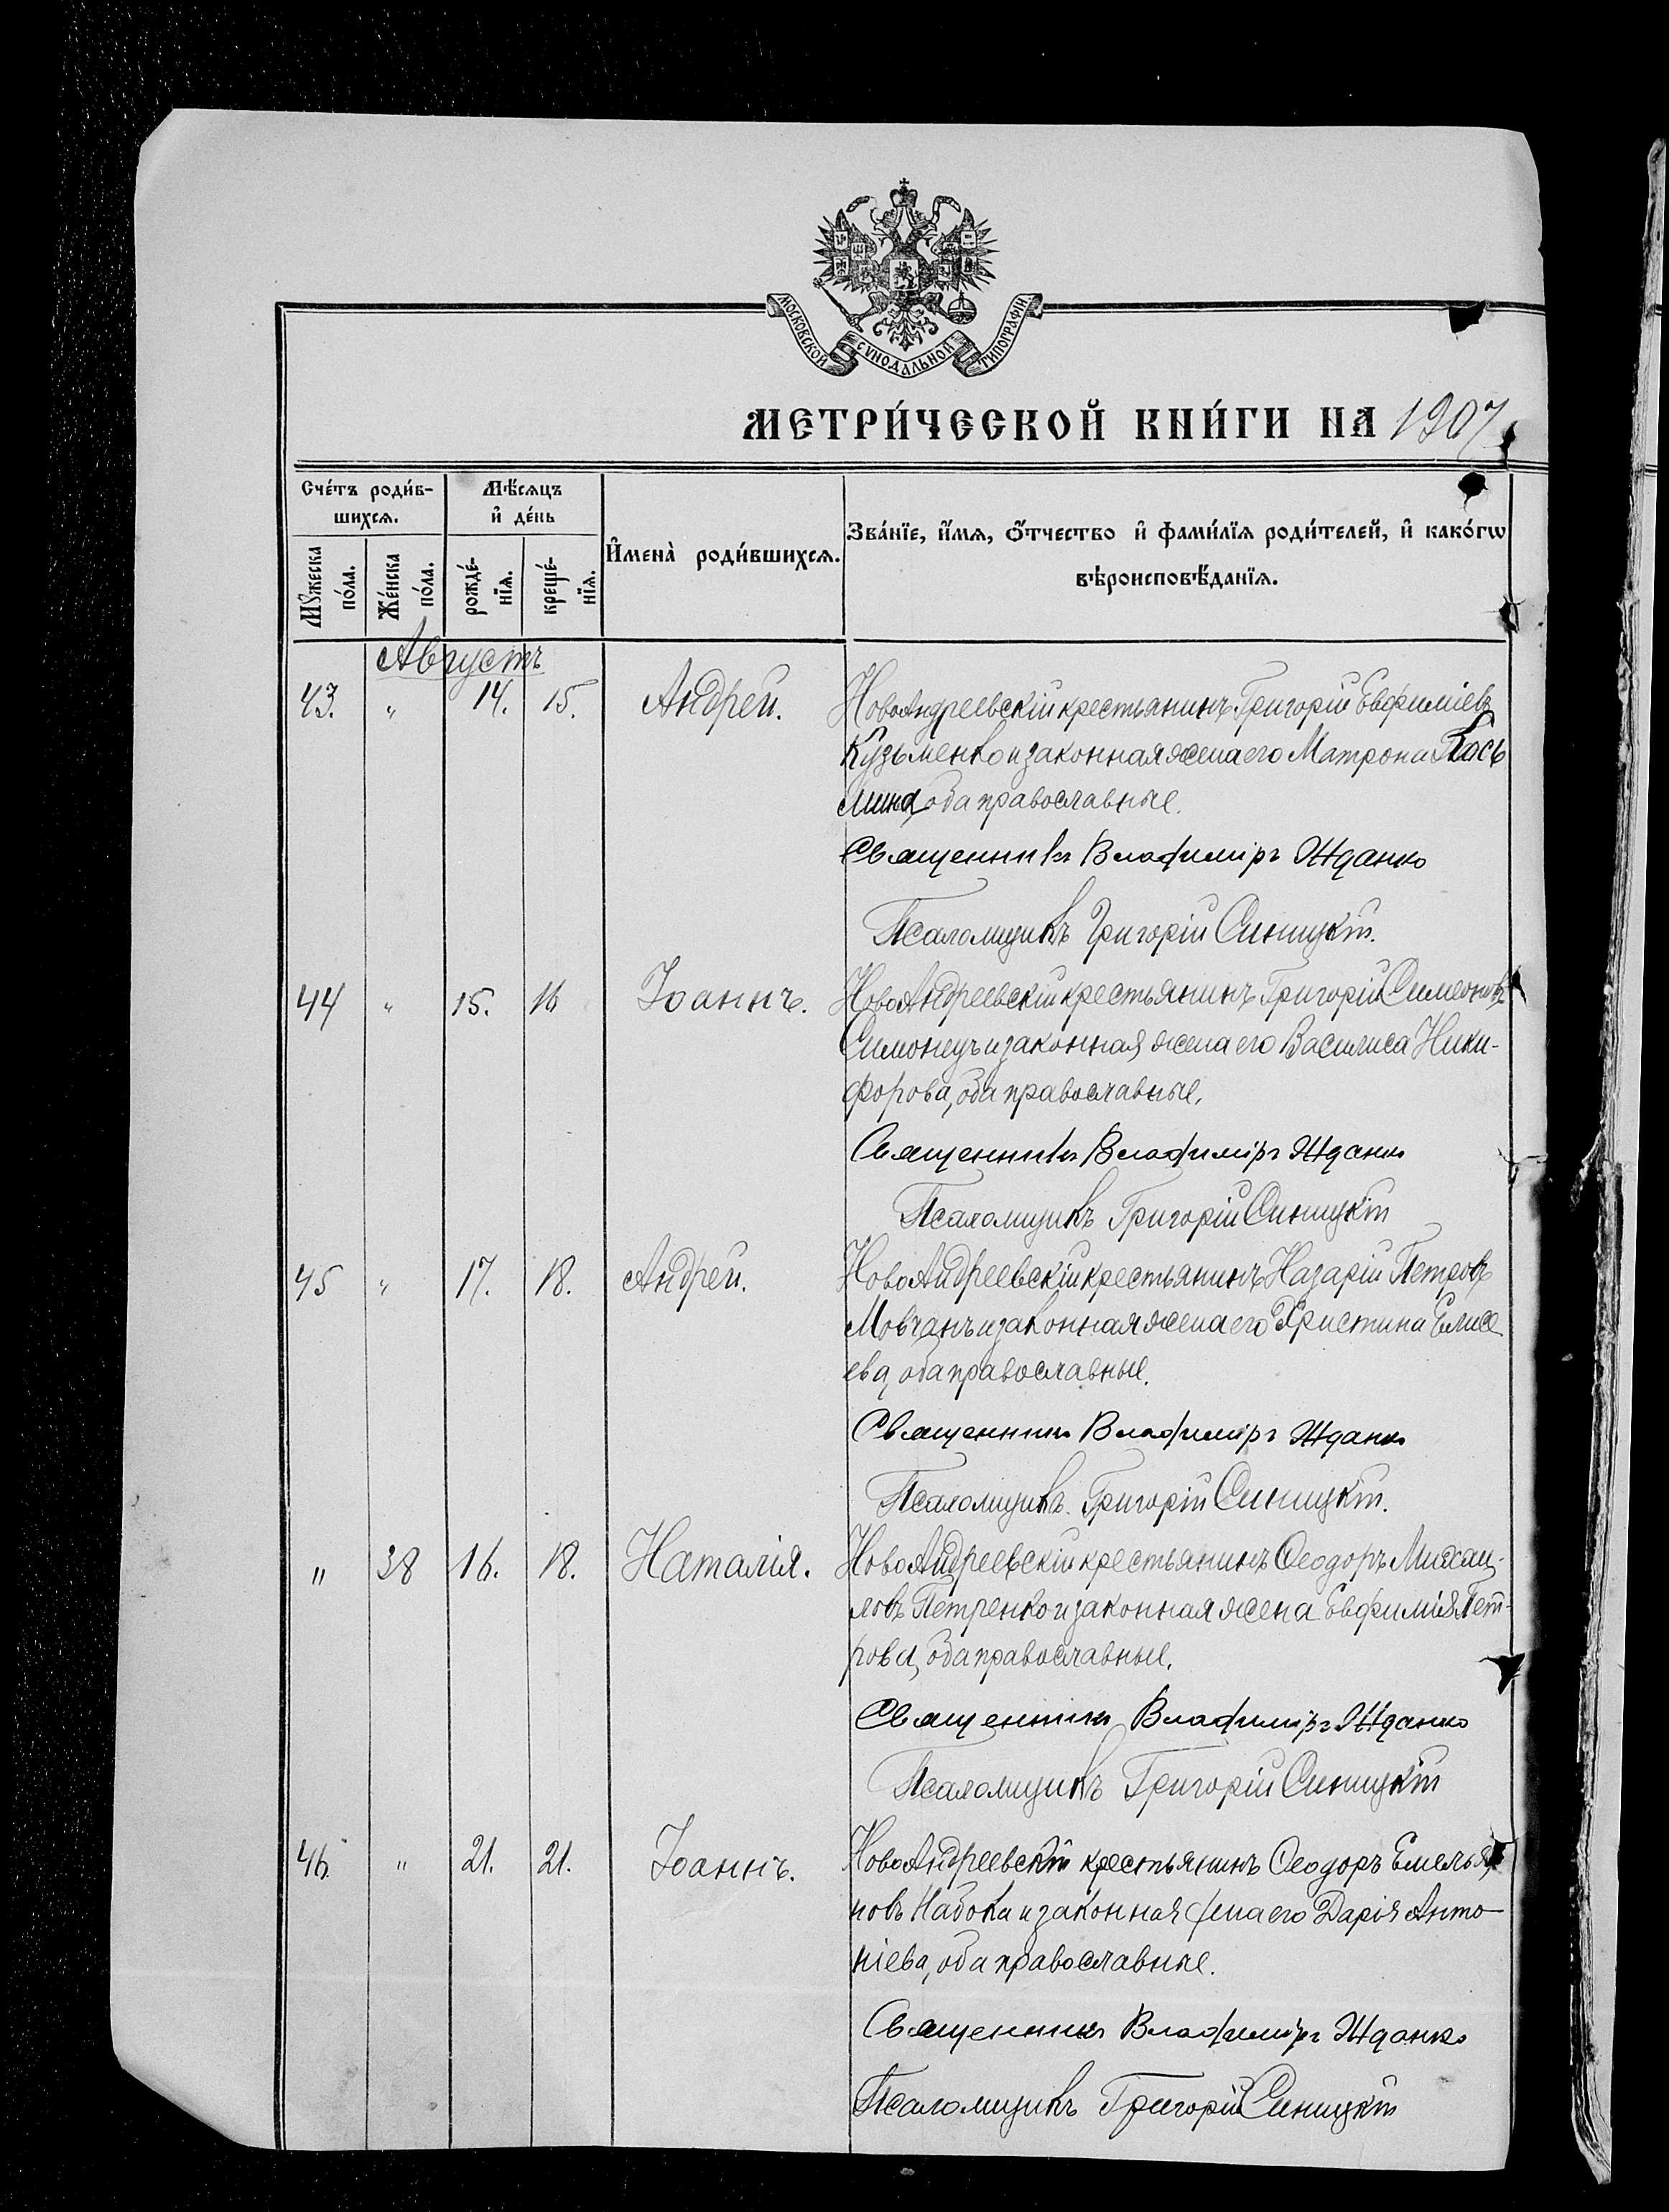 МОСКОВСКОЙ СѴНОДАЛЬНОЙ ТИПОГРАФІИ
МЕТРИ́ЧЕСКОЙ КНИ́ГИ НА 1907
Сче́тъ роди́в-
шихсѧ.
Мѣ́сѧцъ
и҆ де́нь
И҆мена̀ роди́вшихсѧ.
Зва́нїе, и҆́мѧ, ѻ҆́тчество и҆ фами́лїѧ роди́телей, и҆ како́гѡ
вѣроисповѣ́данїѧ.
Мꙋ́жеска
по́ла.
Же́нска
по́ла.
рожде́-
нїѧ.
креще́-
нїѧ.
Августъ
43. " 14. 15. Андрей. НовоАндреевскій крестьянинъ Григорій Евфиміевъ
Кузьменко и законная жена его Матрона Кось
мина, оба православные.
Священникъ Владиміръ Жданко
Псаломщикъ Григорій Синицкій.
44 " 15. 16 Іоаннъ. НовоАндреевскій крестьянинъ Григорій Симеоновъ
Симонецъ и законная жена его Василиса Ники-
форова, оба православные.
Священникъ Владиміръ Жданко
Псаломщикъ Григорій Синицкій
45 " 17. 18. Андрей. НовоАндреевскій крестьянинъ Назарій Петровъ
Мовчанъ и законная жена его Христина Елисе
ева, оба православные.
Священникъ Владиміръ Жданко
Псаломщикъ Григорій Синицкій.
" 38 16. 18. Наталія. НовоАндреевскій крестьянинъ Ѳеодоръ Михаи-
ловъ Петренко и законная жена Евфимія Пет-
рова, оба православные.
Священникъ Владиміръ Жданко
Псаломщикъ Григорій Синицкій
46. " 21. 21. Іоаннъ. НовоАндреевскій крестьянинъ Ѳеодоръ Емелья
новъ Набока и законная жена его Дарія Анто-
ніева, оба православные.
Священникъ Владиміръ Жданко
Псаломщикъ Григорій Синицкій